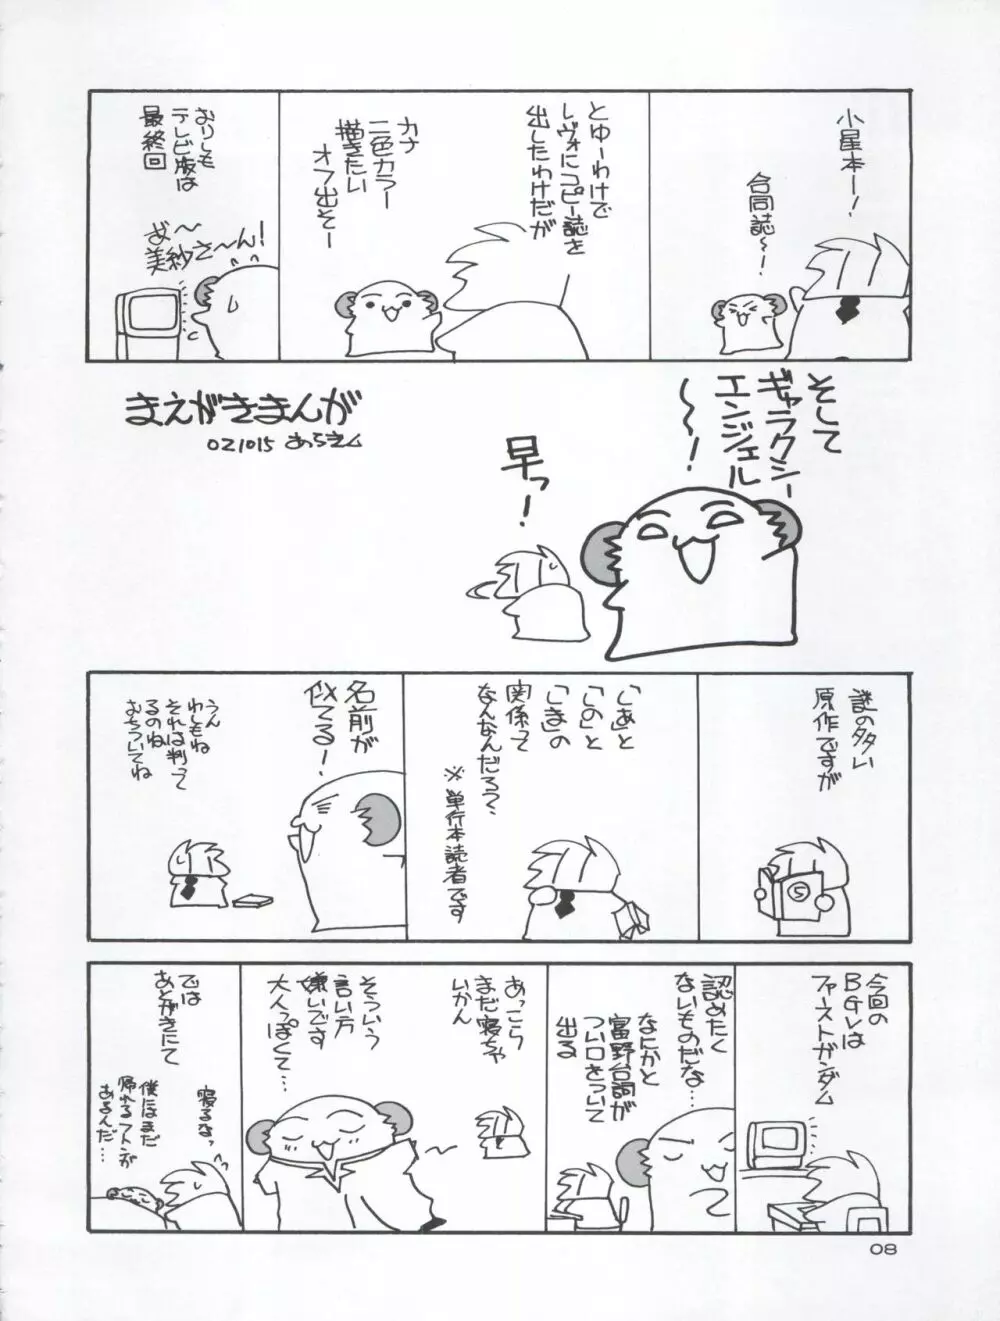 小星本ー！
合同誌〜ー！
とゆーわけで
レヴォにコピー誌を
出したわけだが
カナ
二色カラー
描きたい
オフ出そー
おりしも
テレビ版は
最終回
美紗さ〜ん！
そして
ギャラクシー
エンジェル
〜〜！
早っ！
まえがきまんが
021015 あらえ
謎の多い
原作ですが
5
「あ」と
「の」と
「ま」の
関係って
なんなんだろ？
※単行本読者です
名前が
似てる！
うん
わしもね
それは判って
るのね
おちついてね
今回の
BGVは
ファーストガンダム
認めたく
ないものだな…
なにかと
富野台詞が
ついロをついて
出る
あっこら
まだ寝ちゃ
いかん
そういう
言い方
嫌いです
大人っぽくて…
では
あとがきにて
寝るなっ
僕にはまだ
帰れるフトンが
あるんだ…
08